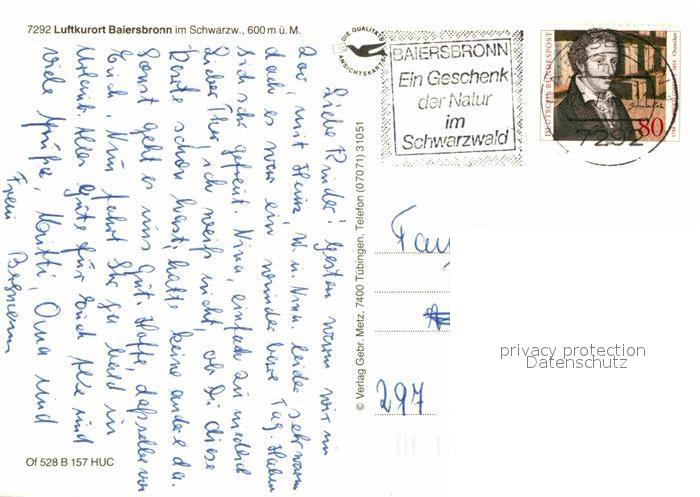 7292 Luftkurort Baiersbronn im Schwarzw., 600 m ü. M.
DIE QUALITÄTS
ANSICHTSKARTE
BAIERSBRONN
Ein Geschenk
der Natur
im
Schwarzwald
DEUTSCHE BUNDESPOST
Chemiker
80
7292
Liebe Kinder! Gestern waren wir im
Zoo, mit Heinz, W. u. Nina. leider sehr warm
doch es war ein wunderbarer Tag. Haben
sich sehr gefreut. Nina, einfach zu niedlich
Lieber Theo, ich weiß nicht, ob Du diese
Karte schon hast, hatte keine andere da.
Sonst geht es uns gut. Hoffe, dasselbe von
Euch. Nun fahrt Ihr ja bald in
Urlaub. Alles Gute für Euch Alle und
viele Grüße, Mutti, Oma und
Frau
© Verlag Gebr. Metz, 7400 Tübingen, Telefon (07071) 31051
Fam
297
privacy protection
Datenschutz
Of 528 B 157 HUC